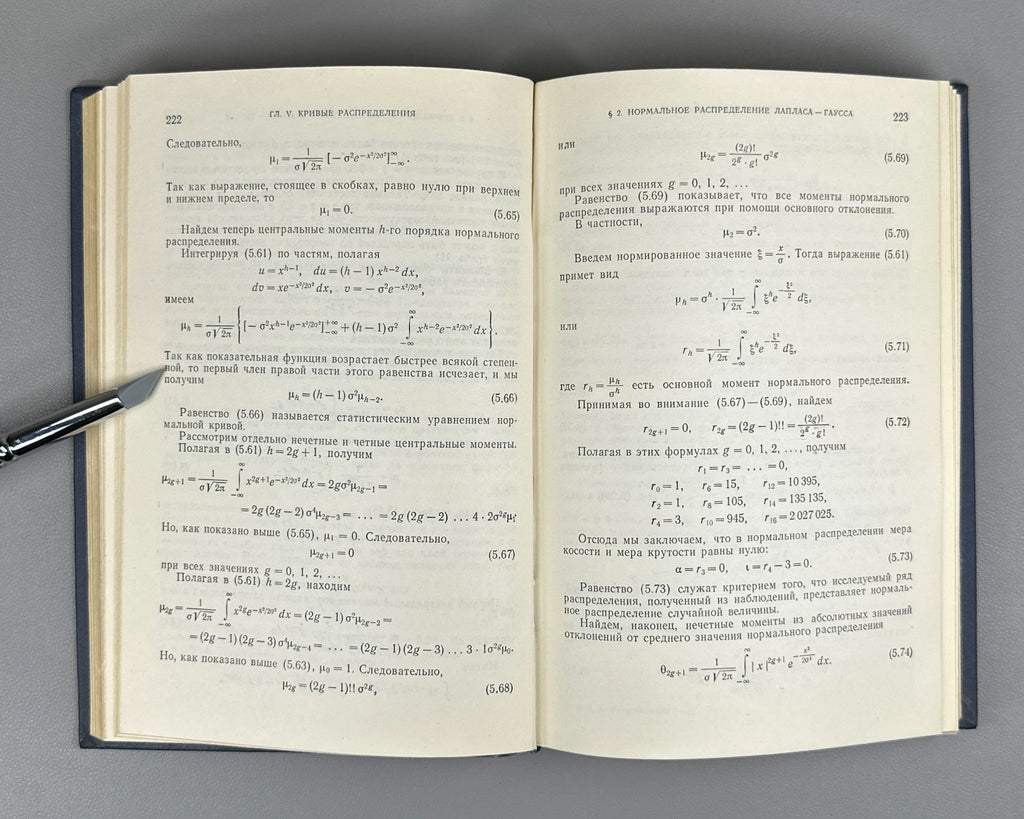 222
ГЛ. V. КРИВЫЕ РАСПРЕДЕЛЕНИЯ
Следовательно,
μ₁ = 1/(σ√2π) [− σ²e^(−x²/2σ²)]_(−∞)^∞.
Так как выражение, стоящее в скобках, равно нулю при верхнем
и нижнем пределе, то
μ₁ = 0. (5.65)
Найдем теперь центральные моменты h-го порядка нормального
распределения.
Интегрируя (5.61) по частям, полагая
u = x^(h−1), du = (h − 1) x^(h−2) dx,
dv = xe^(−x²/2σ²) dx, v = − σ²e^(−x²/2σ²),
имеем
μ_h = 1/(σ√2π) {[− σ²x^(h−1)e^(−x²/2σ²)]_(−∞)^(+∞) + (h − 1) σ² ∫_(−∞)^∞ x^(h−2)e^(−x²/2σ²) dx}.
Так как показательная функция возрастает быстрее всякой степен-
ной, то первый член правой части этого равенства исчезает, и мы
получим
μ_h = (h − 1) σ²μ_(h−2). (5.66)
Равенство (5.66) называется статистическим уравнением нор-
мальной кривой.
Рассмотрим отдельно нечетные и четные центральные моменты.
Полагая в (5.61) h = 2g + 1, получим
μ_(2g+1) = 1/(σ√2π) ∫_(−∞)^∞ x^(2g+1)e^(−x²/2σ²) dx = 2gσ²μ_(2g−1) =
= 2g (2g − 2) σ⁴μ_(2g−3) = ... = 2g (2g − 2) ... 4 · 2σ^(2g)μ₁.
Но, как показано выше (5.65), μ₁ = 0. Следовательно,
μ_(2g+1) = 0 (5.67)
при всех значениях g = 0, 1, 2, ...
Полагая в (5.61) h = 2g, находим
μ_(2g) = 1/(σ√2π) ∫_(−∞)^∞ x^(2g)e^(−x²/2σ²) dx = (2g − 1) σ²μ_(2g−2) =
= (2g − 1) (2g − 3) σ⁴μ_(2g−4) = ... = (2g − 1) (2g − 3) ... 3 · 1σ^(2g)μ₀.
Но, как показано выше (5.63), μ₀ = 1. Следовательно,
μ_(2g) = (2g − 1)!! σ^(2g), (5.68)
§ 2. НОРМАЛЬНОЕ РАСПРЕДЕЛЕНИЕ ЛАПЛАСА — ГАУССА
223
или
μ_(2g) = (2g)!/(2^g · g!) σ^(2g) (5.69)
при всех значениях g = 0, 1, 2, ...
Равенство (5.69) показывает, что все моменты нормального
распределения выражаются при помощи основного отклонения.
В частности,
μ₂ = σ². (5.70)
Введем нормированное значение ξ = x/σ. Тогда выражение (5.61)
примет вид
μ_h = σ^h · 1/√2π ∫_(−∞)^∞ ξ^h e^(−ξ²/2) dξ,
или
r_h = 1/√2π ∫_(−∞)^∞ ξ^h e^(−ξ²/2) dξ, (5.71)
где r_h = μ_h/σ^h есть основной момент нормального распределения.
Принимая во внимание (5.67)—(5.69), найдем
r_(2g+1) = 0, r_(2g) = (2g − 1)!! = (2g)!/(2^g · g!). (5.72)
Полагая в этих формулах g = 0, 1, 2, ..., получим
r₁ = r₃ = ... = 0,
r₀ = 1, r₆ = 15, r₁₂ = 10 395,
r₂ = 1, r₈ = 105, r₁₄ = 135 135,
r₄ = 3, r₁₀ = 945, r₁₆ = 2 027 025.
Отсюда мы заключаем, что в нормальном распределении мера
косости и мера крутости равны нулю:
α = r₃ = 0, ι = r₄ − 3 = 0. (5.73)
Равенство (5.73) служат критерием того, что исследуемый ряд
распределения, полученный из наблюдений, представляет нормаль-
ное распределение случайной величины.
Найдем, наконец, нечетные моменты из абсолютных значений
отклонений от среднего значения нормального распределения
θ_(2g+1) = 1/(σ√2π) ∫_(−∞)^∞ |x|^(2g+1) e^(−x²/2σ²) dx. (5.74)